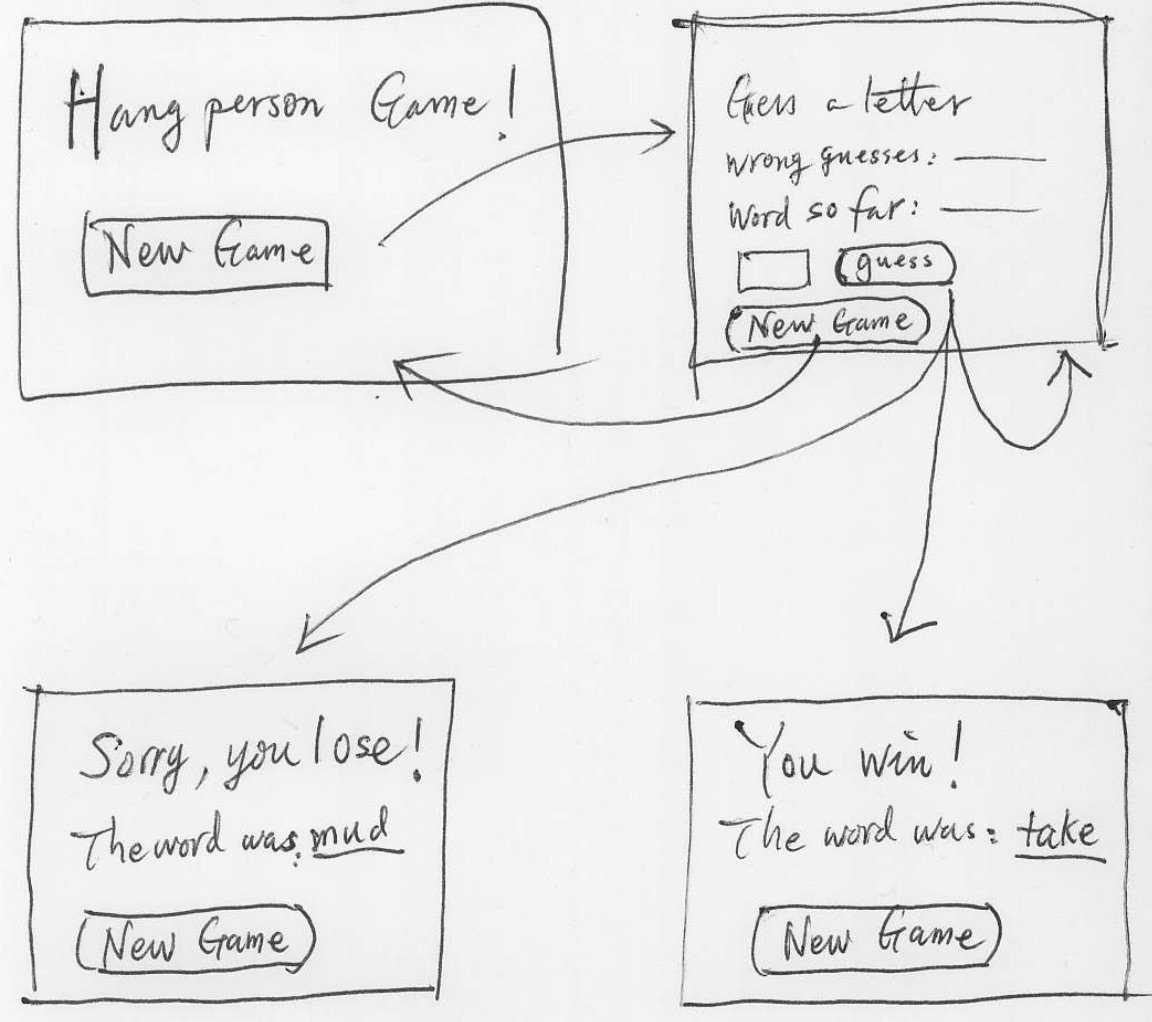 Hangperson Game!
New Game
Guess a letter
wrong guesses:
Word so far:
guess
New Game
Sorry, you lose!
The word was: mud
New Game
You win!
The word was: take
New Game